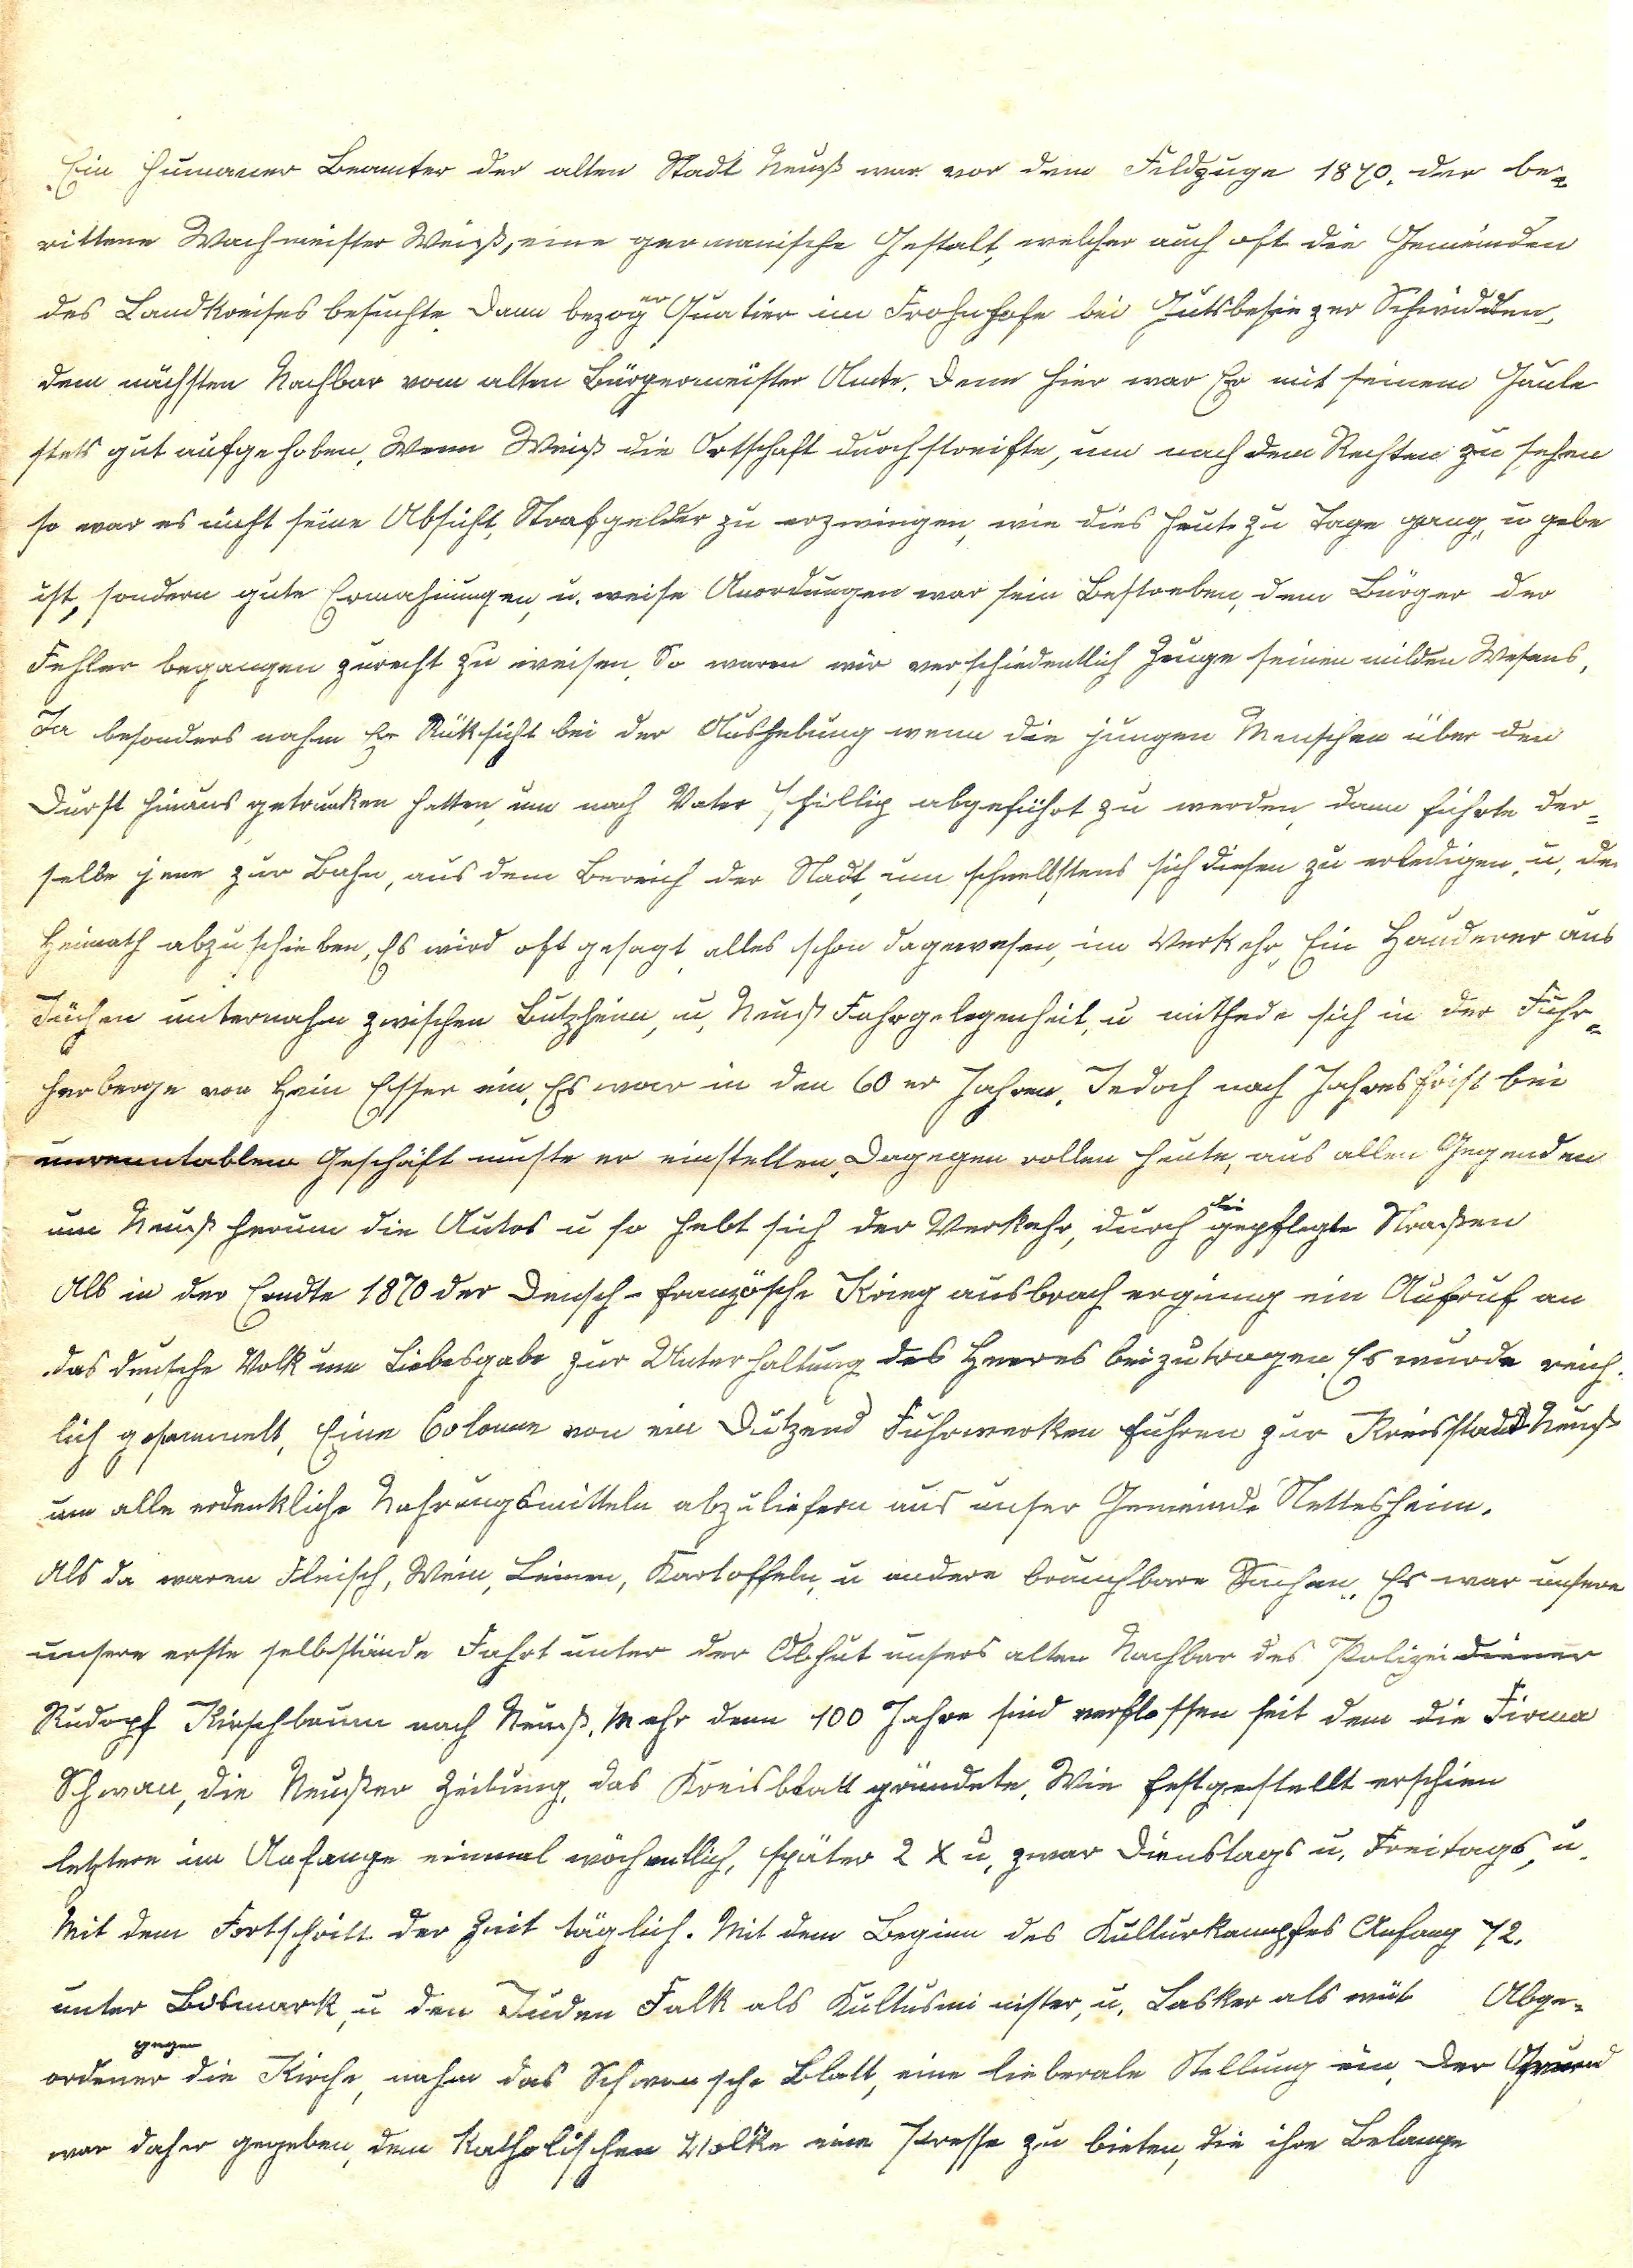 Ein humaner Beamter der alten Stadt Neuß war vor dem Feldzuge 1870. der be=
rittene Wachmeister Weiß, eine germanische Gestalt, welcher auch oft die Gemeinden
des Landkreises besuchte. Dann bezog er Quatier im Frohnhofe bei Gutsbesiezer Schmidden,
dem nächsten Nachbar vom alten Bürgermeister Amte. Denn hier war Er mit seinem Gaule
stets gut aufgehoben. Wenn Weiß die Ortschaft durchstreifte, um nach dem Rechten zu sehen
so war es nicht seine Absicht, Strafgelder zu erzwingen, wie dies heute zu Tage gang, u gebe
ist, sondern gute Ermahnungen, u. weise Anordungen war sein Bestreben, dem Bürger der
Fehler begangen zurecht zu weisen. So waren wir verschiedentlich Zeuge seinen milden Wesens,
Ja besonders nahm Er Rüksicht bei der Aushebung wenn die jungen Menschen über den
Durst hinaus getrunken hatten, um nach Vater Phillip abgeführt zu werden, dann führte der=
selbe jene zur Bahn, aus dem Bereich der Stadt, um schnellstens sich diesen zu erledigen, u. de
Heimath abzuschieben, Es wird oft gesagt, alles schon dagewesen, im Verkehr, Ein Hauderer aus
Jüchen unternahm zwischen Butzheim, u, Neuß Fahrgelegenheit, u mithede sich in der Fuhr=
herberge von Hein Esser ein, Es war in den 60 er Jahren. Jedoch nach Jahresfrist bei
unrenntablem Geschäft muste er einstellen. Dagegen rollen heute, aus allen Gegenden
um Neuß herum die Autos u so hebt sich der Verkehr, durch die gepflegte Straßen
Als in der Erndte 1870 der Deusch-französche Krieg ausbrach ergieng ein Aufruf an
das deutsche Volk um Liebesgabe zur Unterhaltung des Heeres beizutragen. Es wurde reich.
lich gesammelt, Eine Colonne von ein Dutzend Fuhrwerken fuhren zur Kreisstadt Neuß
um alle erdenkliche Nahrungsmitteln abzuliefern aus unser Gemeinde Nettesheim.
Als da waren Fleisch, Wein, Leinen, Kartoffeln, u andere brauchbare Sachen. Es war unsere
unsere erste selbstände Fahrt unter der Obhut unsers alten Nachbar des Polizeidiener
Rudopf Kirschbaum nach Neuß. Mehr denn 100 Jahre sind verflossen seit dem die Firma
Schwan, die Neußer Zeitung, das Kreisblatt gründete. Wie festgestellt erschien
letztere im Anfange einmal wöchentlich, später 2 X u, zwar Dienstags u, Freitags, u.
Mit dem Fortschritt der Zeit täglich. Mit dem Beginn des Kulturkampfes Anfang 72.
unter Bismark, u den Juden Falk als Kultusminister, u. Lasker als wüt Abge=
ordener gegen die Kirche, nahm das Schwansche Blatt, eine lieberale Stellung ein, Der Grund
war daher gegeben, dem Katholischen Volke eine Presse zu bieten, die ihre Belange